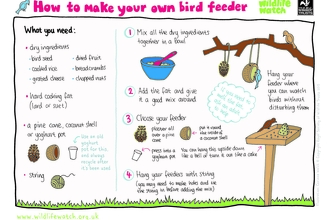 How to make your own bird feeder
wildlife watch
What you need:
• dry ingredients
- bird seed
- dried fruit
- cooked rice
- breadcrumbs
- grated cheese
- chopped nuts
• hard cooking fat
(lard or suet)
• a pine cone, coconut shell
or yoghurt pot.
• string
1 Mix all the dry ingredients
together in a bowl
2 Add the fat and give
it a good mix around
3 Choose your feeder
plaster all
over a pine
cone
put it inside
the inside of a
coconut shell
press into a
yoghurt pot
You can hang this upside down
like a bell or turn it out like a cake
4 Hang your feeders with string
(you may need to make holes and tie
the string in before adding the mix!)
Hang your
feeder where
you can watch
birds without
disturbing them
www.wildlifewatch.org.uk